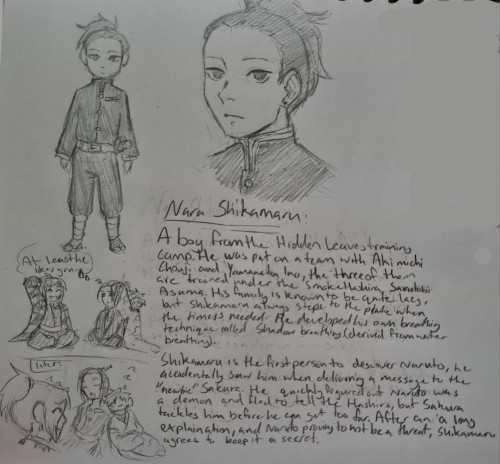 Nara Shikamaru:
A boy from the Hidden Leaves training
camp. He was put on a team with Akimichi
Chouji and Yamanaka Ino, the three of them
are trained under the Smoke Hashira, Sarutobi
Asuma. His family is known to be quite lazy,
but Shikamaru always steps to the plate when
the time is needed. He developed his own breathing
technique called Shadow breathing (derived from water
breathing).
At least the
Shikamaru is the first person to discover Naruto, he
accidentally saw him when delivering a message to the
"newbie" Sakura. He quickly figured out Naruto was
a demon and tried to tell the Hashira, but Sakura
tackles him before he can get too far. After a long
explaination, and Naruto proving to not be a threat, Shikamaru
agrees to keep it a secret.
later